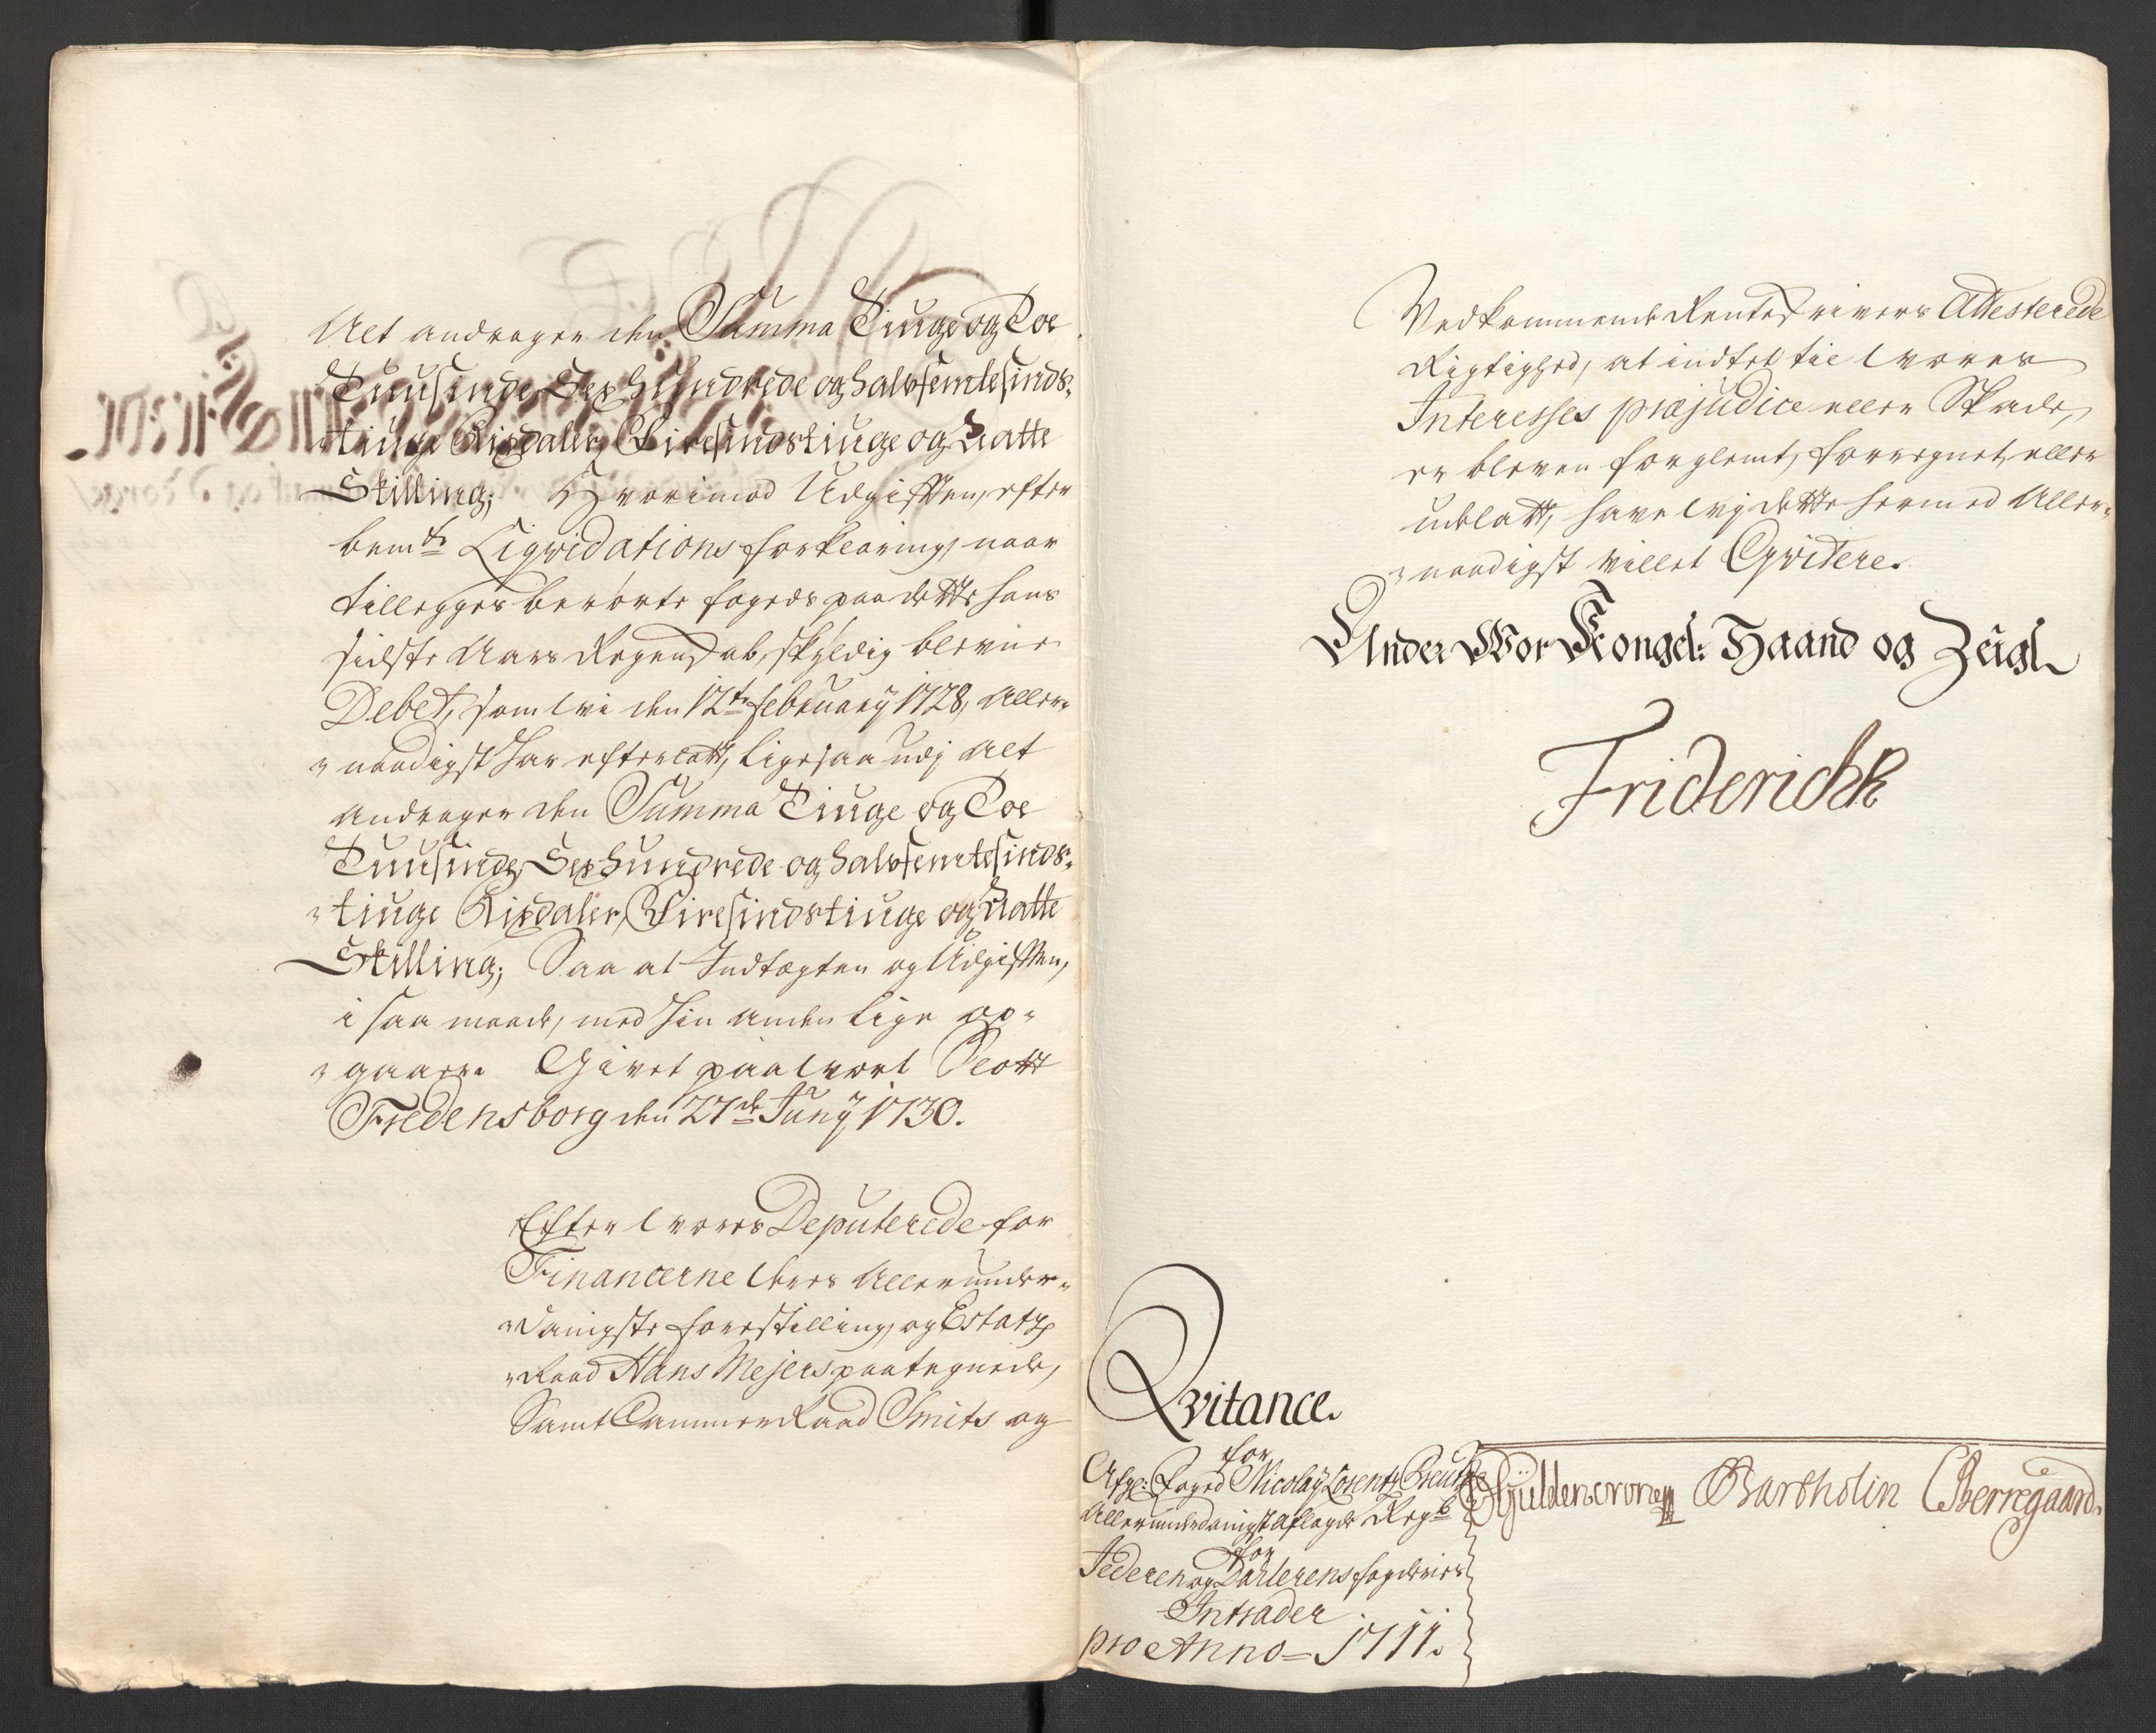 Alt andrager den Summa Tiuge og Toe
Tuusinde, Sex hundrede og halvfemtesinds-
tiuge Rixdaler, Firesindstiuge og Aatte
Skilling; Hvorimod Udgifften, efter
bemte Liqvidations forklaring, naar
tillegges berørte fogeds paa dette hans
sidste Aars Regenskab, skyldig blevne
Debet, som vi den 12te february 1728, Aller-
naadigst har efterladt, ligesaa udj alt
andrager den Summa Tiuge og Toe
Tuusinde, Sex hundrede og halvfemtesinds-
tiuge Rixdaler, Firesindstiuge og Aatte
Skilling; Saa at Indtægten og Udgifften,
i saa maade, med hin anden lige op-
gaaer. Givet paa vort Slott
Fredensborg den 27de Juny 1730.
Efter vores Deputerede for
Financerne deres Allerunder-
danigste forestilling, og Estatz
Raad Hans Mejers paategnede,
Samt Cammer Raad Smits og
Vedkommende Renteskrivers Attesterede
Rigtighed, at indtet til vores
Interesses præjudice eller Skade,
er bleven forglemt, forregnet, eller
udeladt, have vj dette hermed Aller-
naadigst villet Qvitere.
Under Vor Kongel: Haand og Zeigl
Friderich R
Qvitance.
for
Afg: Foged Nicolaÿ Lorentz
Allerunderdanigst aflagde Regsk
for
Jederen og Dahlerens fogderiers
Intrader
pro Anno = 1711.
Gÿldencrone Bartholin CBerregaard.